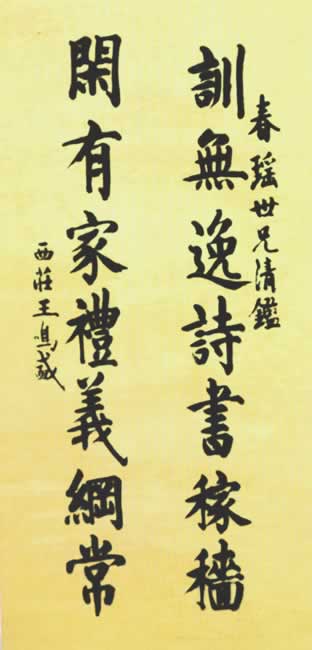 春瑤世兄清鑑
訓無逸詩書稼穡
閑有家禮義綱常
西莊王鳴盛